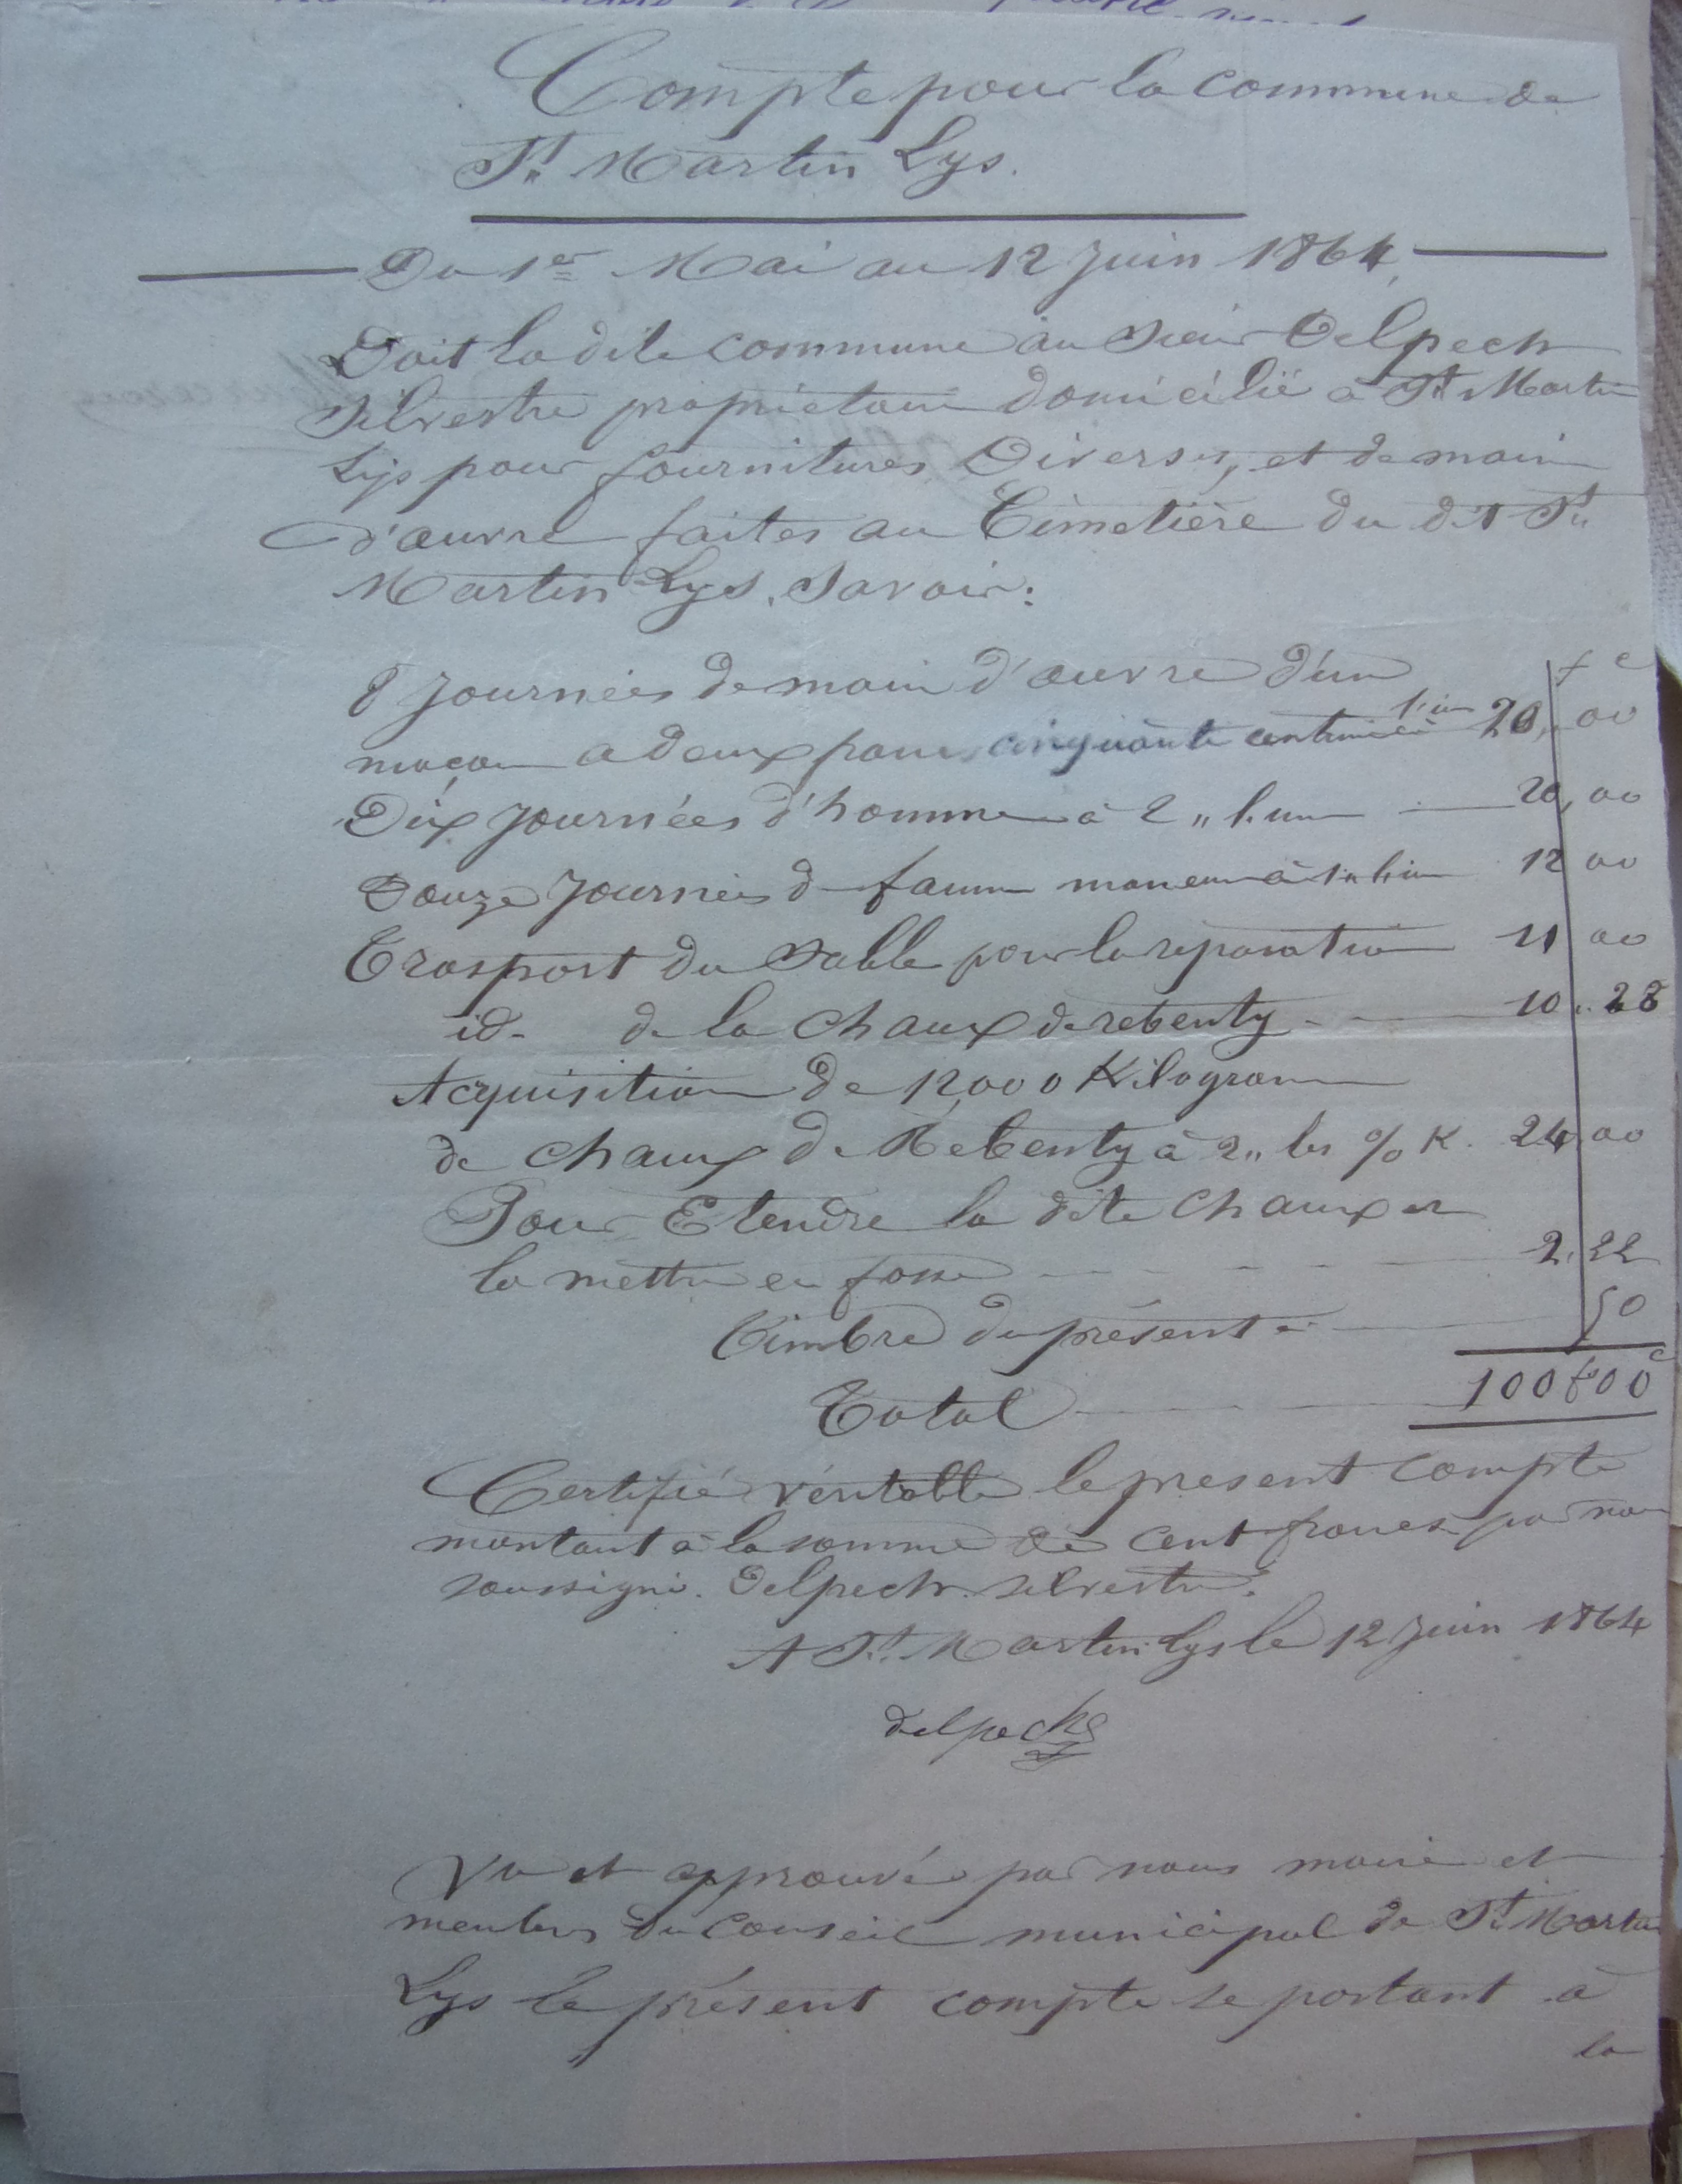 Compte pour la commune de
St Martin Lys.
Du 1er Mai au 12 Juin 1864
Doit la dite commune au Sieur Delpech
Silvestre propriétaire domicilié a St Martin
Lys pour fournitures Diverses, et de main
d'œuvre faites au Cimetière du dit St
Martin Lys. Savoir:
f c
8 Journées de main d'œuvre d'un
maçon a deux francs cinquante centimes l'un 20, 00
Dix Journées d'homme à 2 „ l'un 20, 00
Douze Journées d famm maneu à 1 „ l'un 12 00
Trasport du Sable pour la reparation 11 00
id. de la Chaux de rebenty 10. 28
Acquisition de 12,000 Kilogram
de chaux de Rebenty à 2 „ les % K. 24 00
Pour Etendre la dite Chaux et
la mettre en fosse 2. 22
Timbre du présent 50
Total 100 f 00 c
Certifié véritable le present compte
montant à la somme de Cent francs par nous
soussigné. Delpech Silvestre.
A St Martin Lys le 12 Juin 1864
delpech
Vu et approuvé par nous maire et
membres du Conseil municipal de St Martin
Lys le présent compte se portant à
la